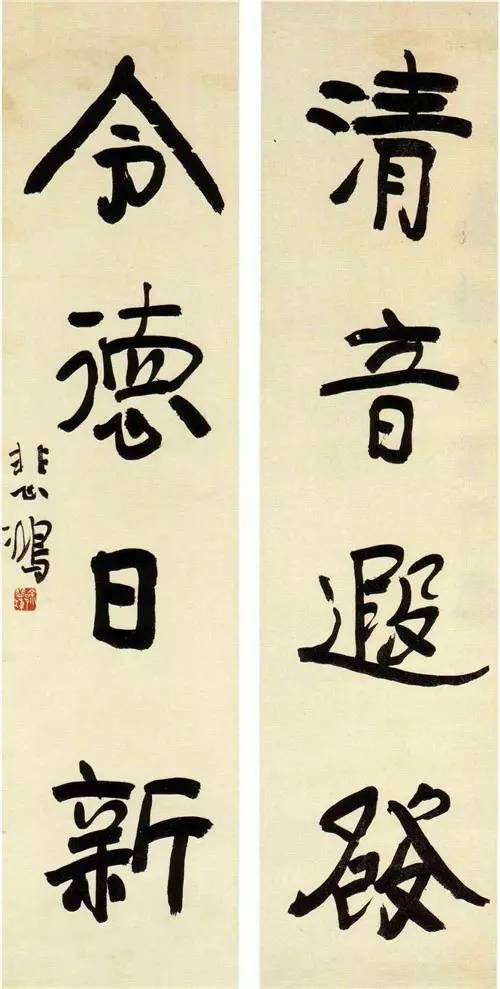 清音遐發
令德日新
悲鴻